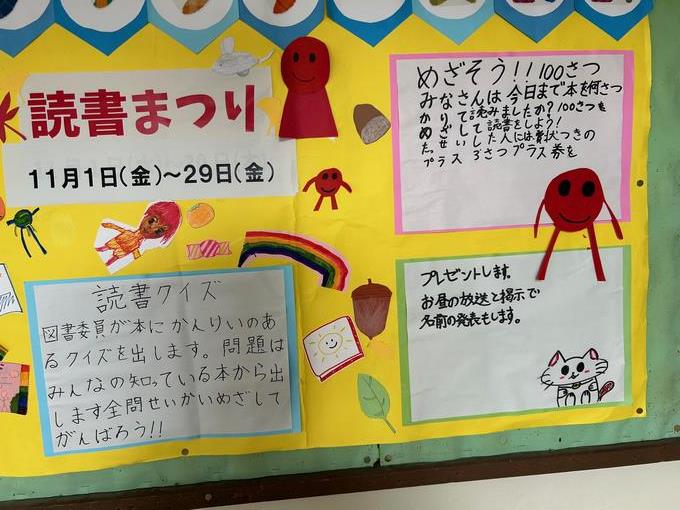 読書まつり
11月1日(金)~29日(金)
めざそう!!100さつ
みなさんは今日まで本を何さつ
かりて読みましたか?100さつを
めざして読書をしよう!
たっせいした人には賞状つきの
プラス3さつプラス券を
プレゼントします。
お昼の放送と掲示で
名前の発表もします。
読書クイズ
図書委員が本にかんけいのあ
るクイズを出します。問題は
みんなの知っている本から出
します全問せいかいめざして
がんばろう!!